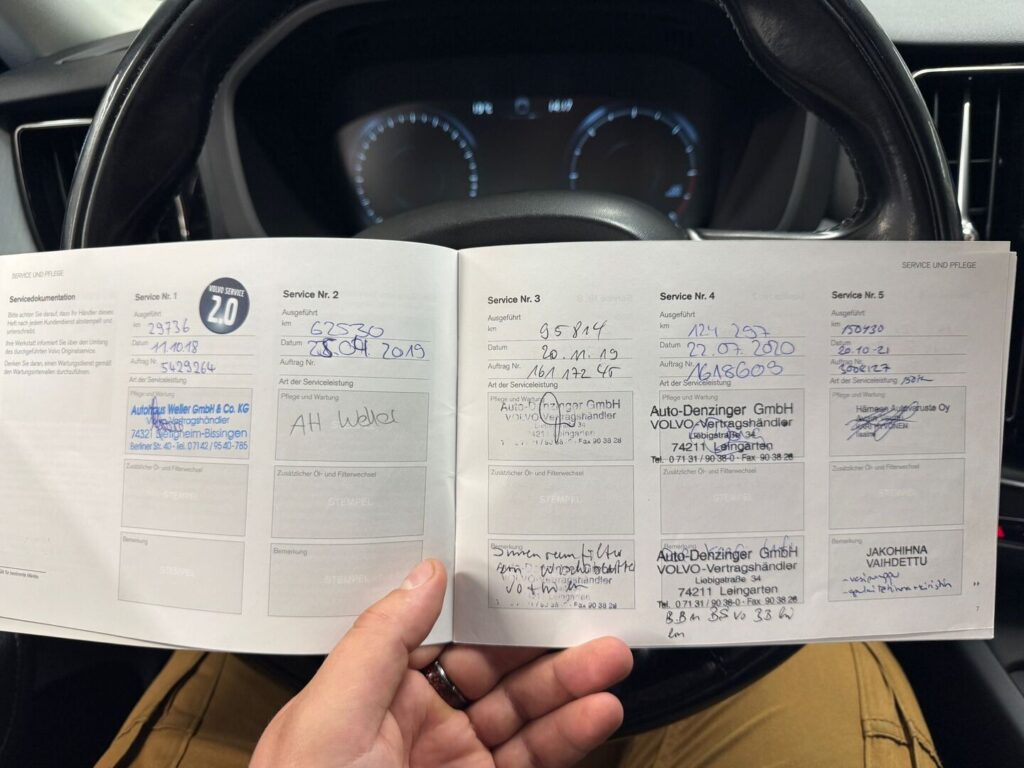 SERVICE UND PFLEGE
Servicedokumentation
Bitte achten Sie darauf, dass Ihr Händler dieses
Heft nach jedem Kundendienst abstempelt und
unterschreibt.
Ihre Werkstatt informiert Sie über den Umfang
des durchgeführten Volvo Originalservice.
Denken Sie daran, einen Wartungsdienst gemäß
den Wartungsintervallen durchzuführen.
Service Nr. 1
VOLVO SERVICE
2.0
Ausgeführt
km 29736
Datum 11.10.18
Auftrag Nr. 5429264
Art der Serviceleistung
Pflege und Wartung
Autohaus Weller GmbH & Co. KG
Volvo-Vertragshändler
74321 Bietigheim-Bissingen
Berliner Str. 40 - Tel. 07142 / 95 40-765
Zusätzlicher Öl- und Filterwechsel
STEMPEL
Bemerkung
STEMPEL
Service Nr. 2
Ausgeführt
km 62530
Datum 25.04.2019
Auftrag Nr.
Art der Serviceleistung
Pflege und Wartung
AH Weller
Zusätzlicher Öl- und Filterwechsel
STEMPEL
Bemerkung
STEMPEL
SERVICE UND PFLEGE
Service Nr. 3
Ausgeführt
km 95814
Datum 20.11.19
Auftrag Nr. 161 172 45
Art der Serviceleistung
Pflege und Wartung
Auto-Denzinger GmbH
VOLVO-Vertragshändler
Liebigstraße 34
74211 Leingarten
Fax 90 38 28
Zusätzlicher Öl- und Filterwechsel
STEMPEL
Bemerkung
Innenraumfilter
Service Nr. 4
Ausgeführt
km 124 297
Datum 22.07.2020
Auftrag Nr. 1618609
Art der Serviceleistung
Pflege und Wartung
Auto-Denzinger GmbH
VOLVO-Vertragshändler
Liebigstraße 34
74211 Leingarten
Tel. 0 71 31 / 90 38-0 · Fax 90 38 28
Zusätzlicher Öl- und Filterwechsel
STEMPEL
Bemerkung
Auto-Denzinger GmbH
VOLVO-Vertragshändler
Liebigstraße 34
74211 Leingarten
Tel. 0 71 31 / 90 38-0 · Fax 90 38 28
Service Nr. 5
Ausgeführt
km 150130
Datum 20.10-21
Auftrag Nr.
Art der Serviceleistung
Pflege und Wartung
Hämeen Autovaruste Oy
Zusätzlicher Öl- und Filterwechsel
STEMPEL
Bemerkung
JAKOHIHNA
VAIHDETTU
7